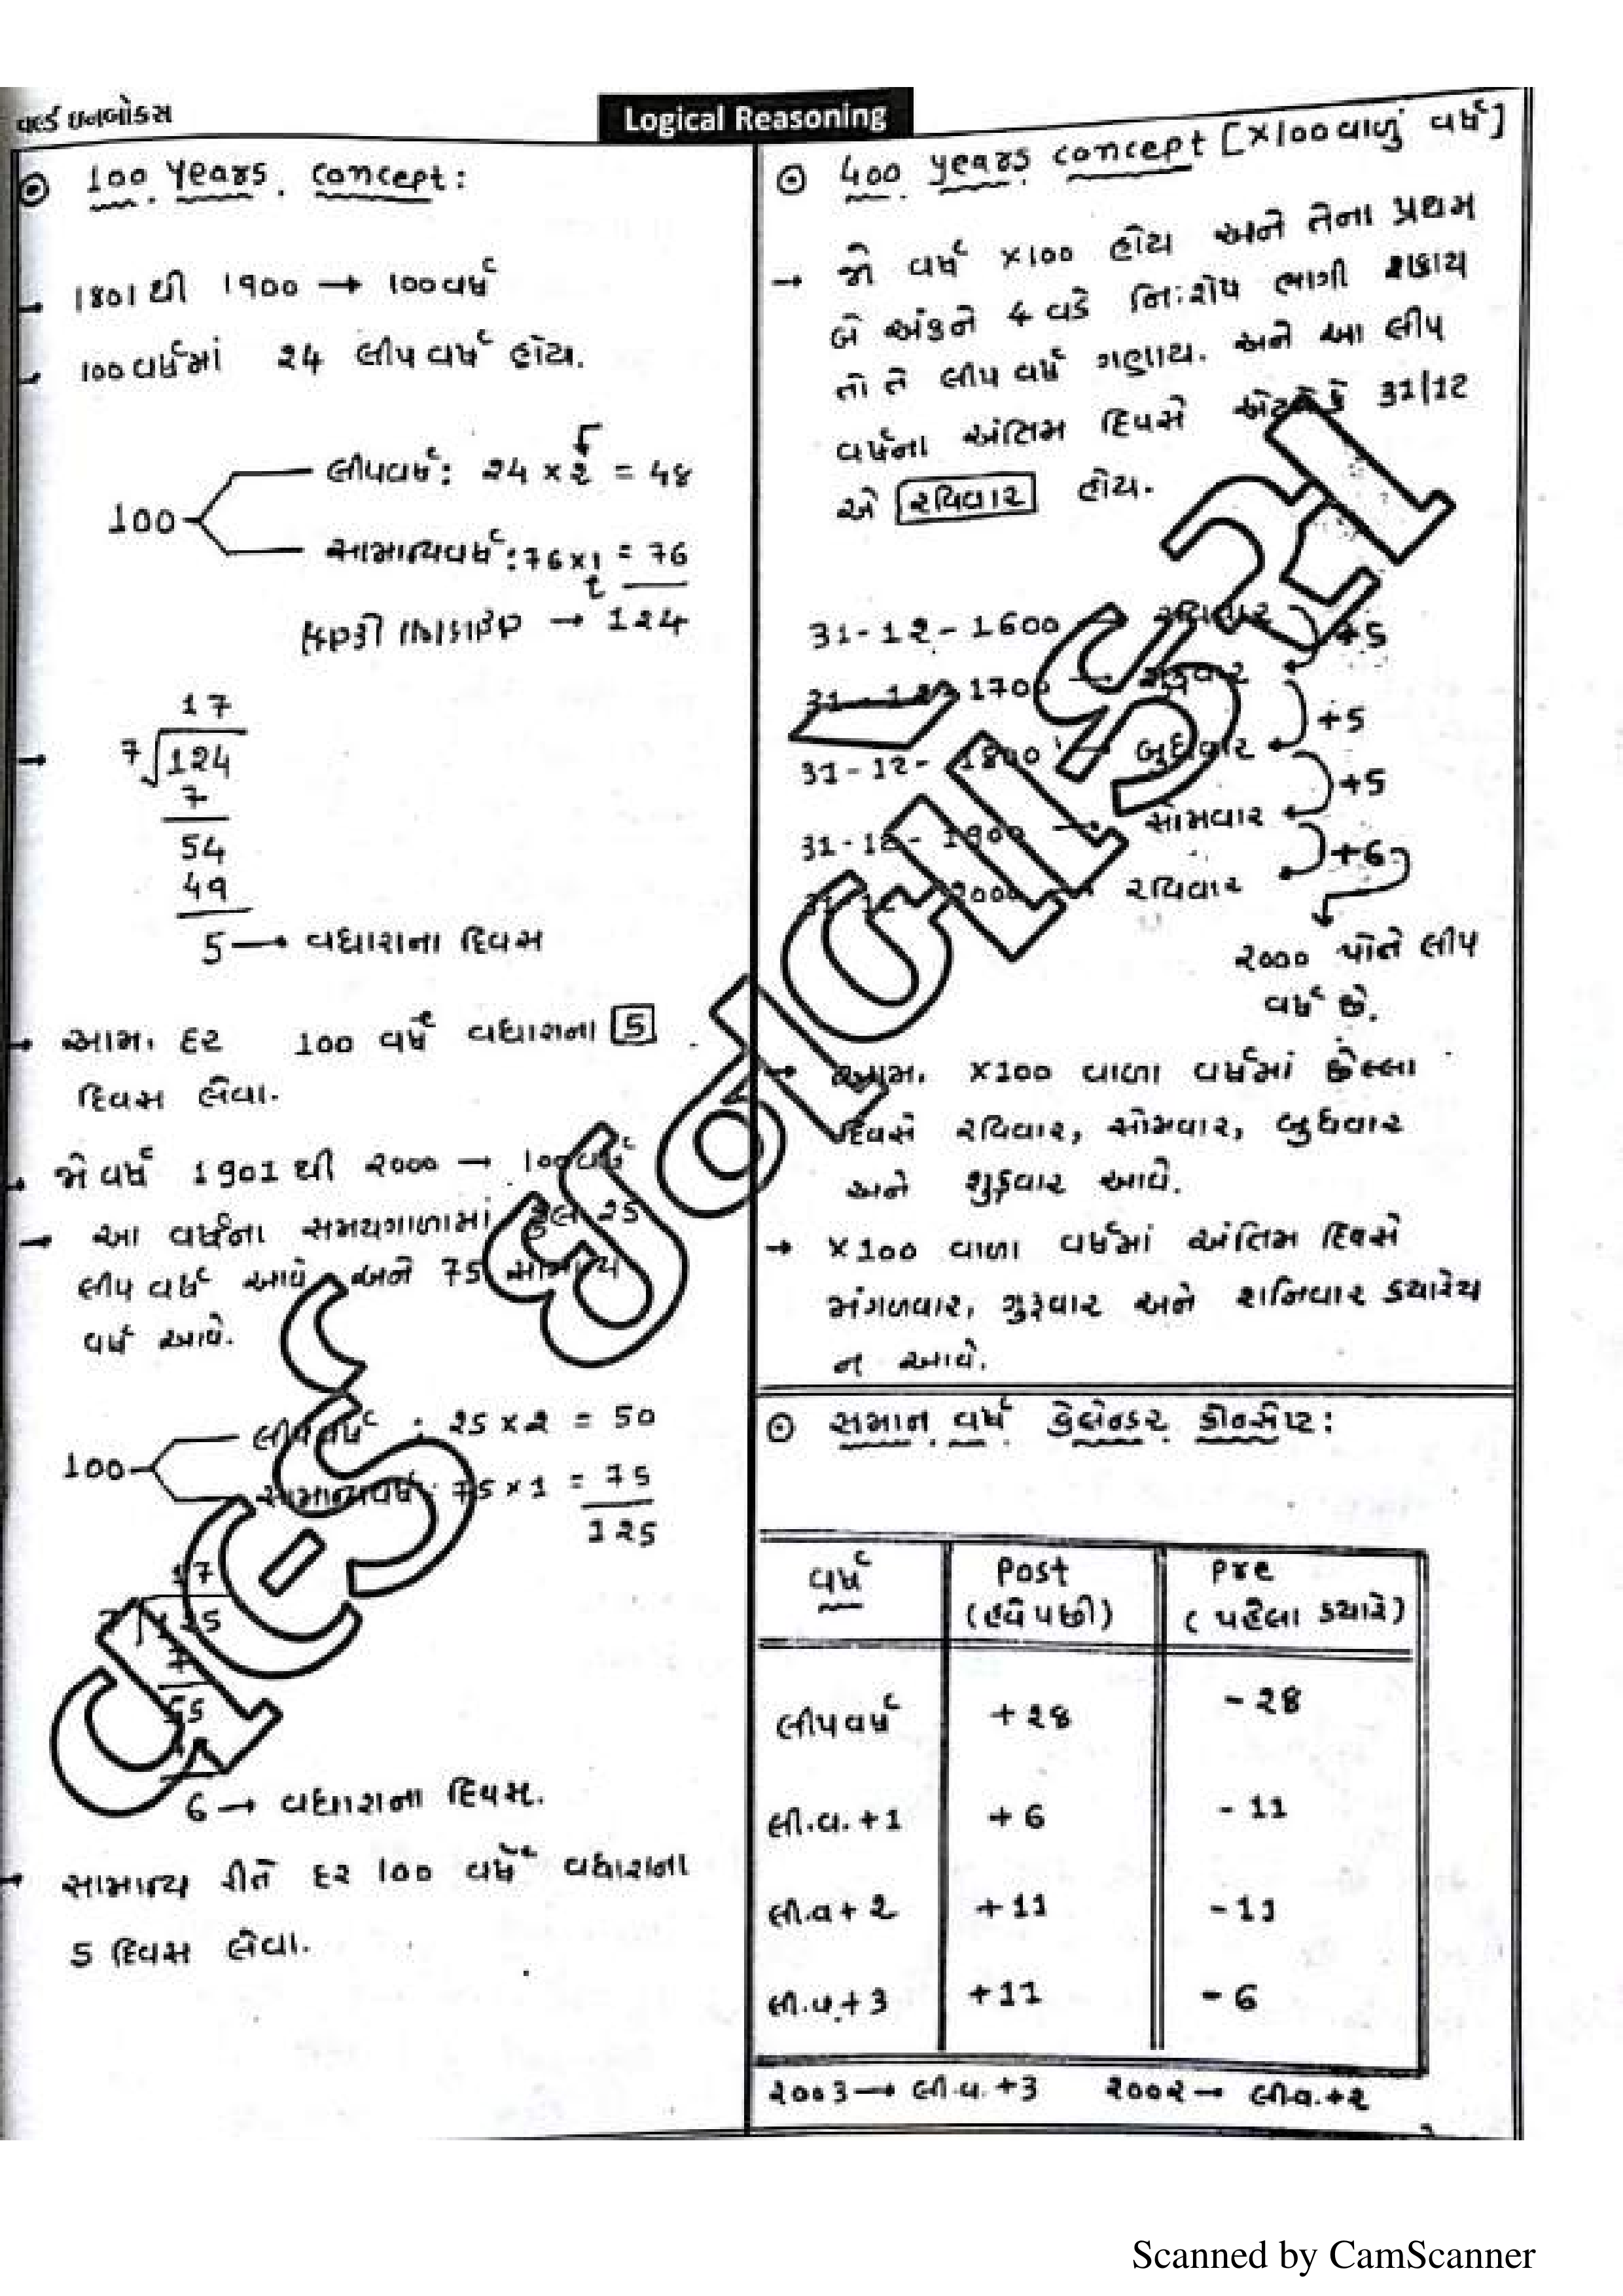 વર્લ્ડ ઇનબોક્સ
Logical Reasoning
100 Years Concept:
→ 1801 થી 1900 → 100 વર્ષ
→ 100 વર્ષમાં 24 લીપ વર્ષ હોય.
લીપવર્ષ: 24 × 2 = 48
100
સામાન્યવર્ષ: 76 × 1 = 76
→ 124
17
→ 7√124
7
54
49
5 → વધારાના દિવસ
→ આમ, દર 100 વર્ષે વધારાના 5
દિવસ લેવા.
→ જો વર્ષ 1901 થી 2000 → 100 વર્ષ
→ આ વર્ષના સમયગાળામાં કુલ 25
લીપ વર્ષ આવે અને 75 સામાન્ય
વર્ષ આવે.
લીપ વર્ષ : 25 × 2 = 50
100
સામાન્યવર્ષ: 75 × 1 = 75
125
17
125
7
55
6 → વધારાના દિવસ.
→ સામાન્ય રીતે દર 100 વર્ષે વધારાના
5 દિવસ લેવા.
400 years concept [×100 વાળું વર્ષ]
→ જો વર્ષ ×100 હોય અને તેના પ્રથમ
બે અંકને 4 વડે નિઃશેષ ભાગી શકાય
તો તે લીપ વર્ષ ગણાય. અને આ લીપ
વર્ષના અંતિમ દિવસે એટલે કે 31/12
એ રવિવાર હોય.
31-12-1600 → રવિવાર
+5
31-12-1700 → શુક્રવાર
+5
31-12-1800 → બુધવાર
+5
31-12-1900 → સોમવાર
+6
31-12-2000 → રવિવાર
2000 પોતે લીપ
વર્ષ છે.
→ આમ, ×100 વાળા વર્ષમાં છેલ્લા
દિવસે રવિવાર, સોમવાર, બુધવાર
અને શુક્રવાર આવે.
→ ×100 વાળા વર્ષમાં અંતિમ દિવસે
મંગળવાર, ગુરૂવાર અને શનિવાર ક્યારેય
ન આવે.
સમાન વર્ષ કેલેન્ડર કોન્સેપ્ટ:
વર્ષ Post Pre
(હવે પછી) (પહેલા ક્યારે)
લીપ વર્ષ +28 -28
લી.વ.+1 +6 -11
લી.વ+2 +11 -11
લી.વ.+3 +11 -6
2003 → લી.વ.+3 2002 → લી.વ.+2
Scanned by CamScanner